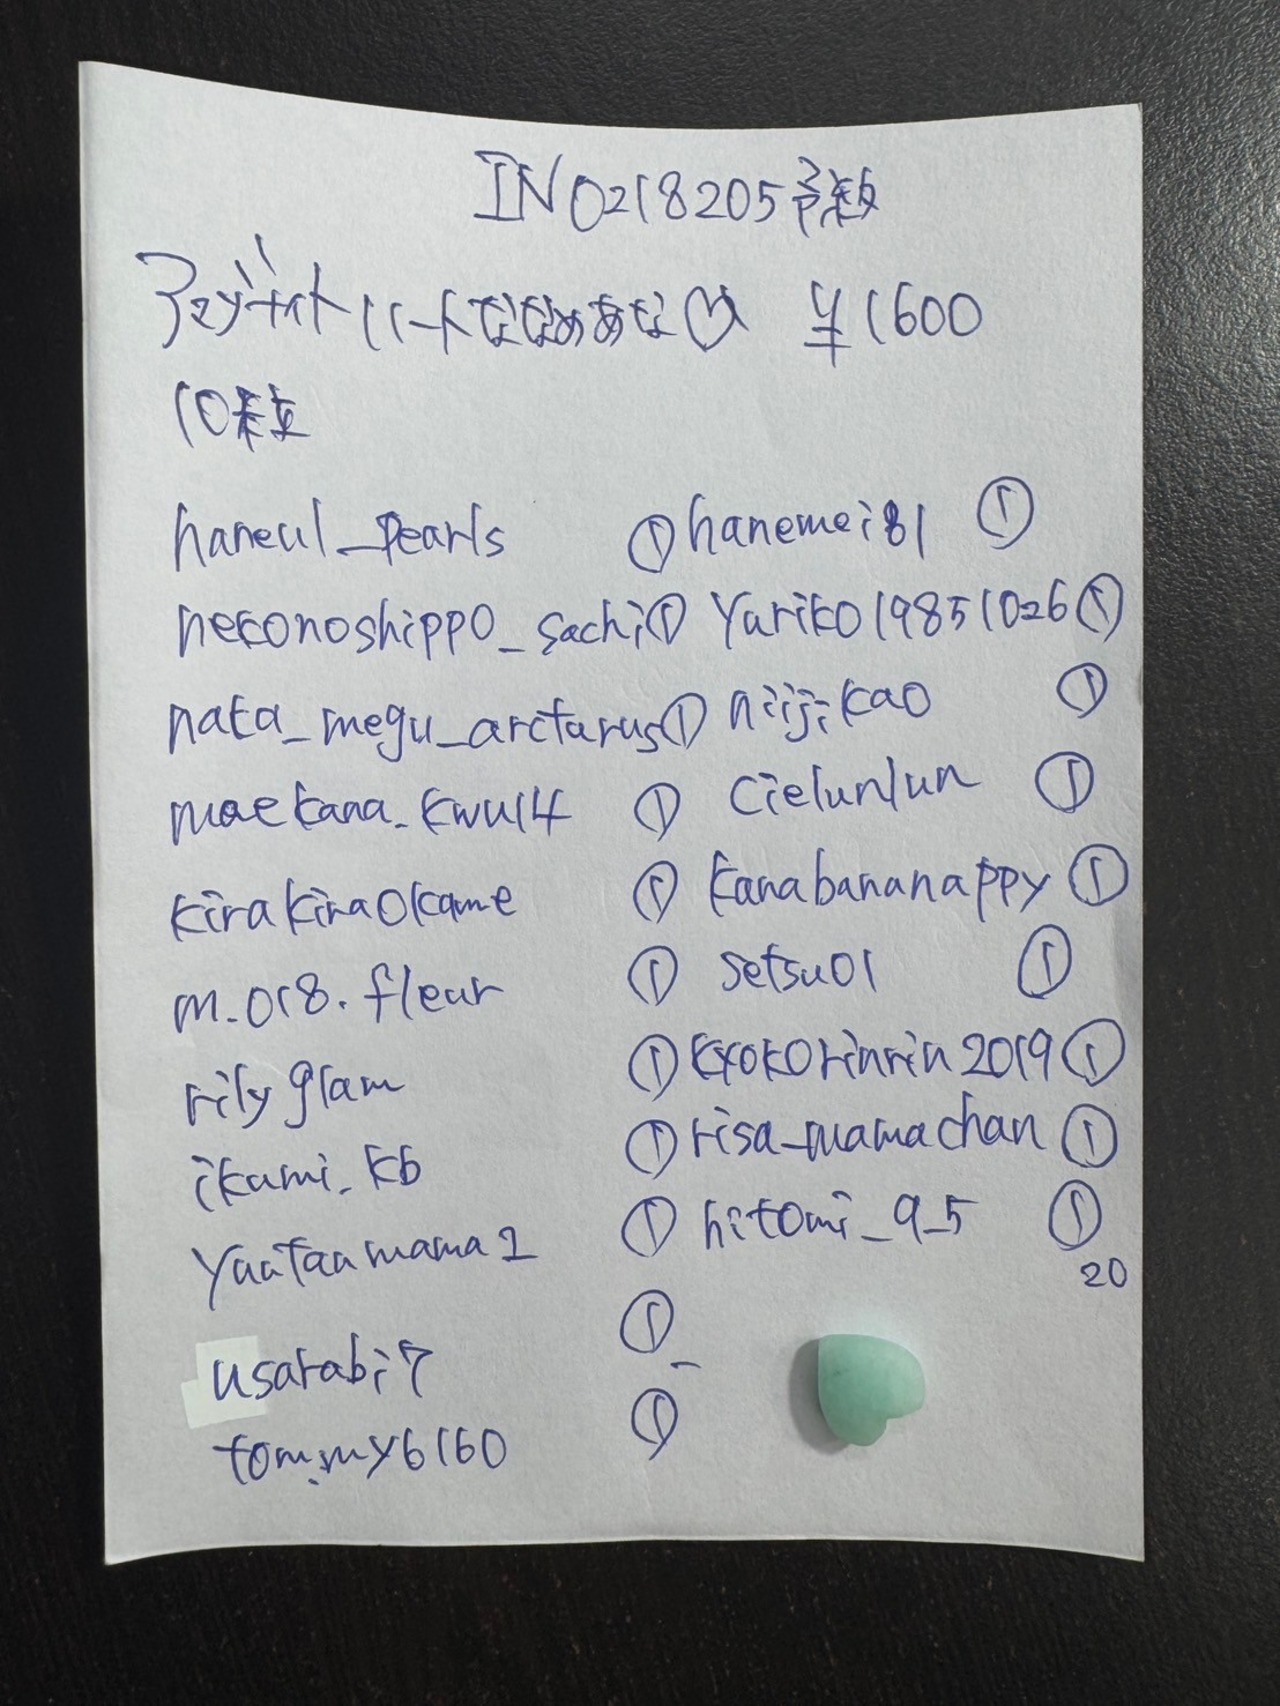 IN0218205予約
アマゾナイトハートななめあな♡ ¥1600
10粒
haneul_pearls ①
nekonoshippo_sachi ①
nata_megu_arctarus ①
maekana.kwu14 ①
kirakiraokame ①
m.018.fleur ①
rilyglam ①
ikumi.kb ①
yuutanmama1 ①
usarabi7 ①
tommy6160 ①
hanemei81 ①
yuriko19851026 ①
niijikao ①
cielunlun ①
kanabananappy ①
setsu01 ①
kyokorinrin2019 ①
risa_mamachan ①
hitomi_9_5 ①
20